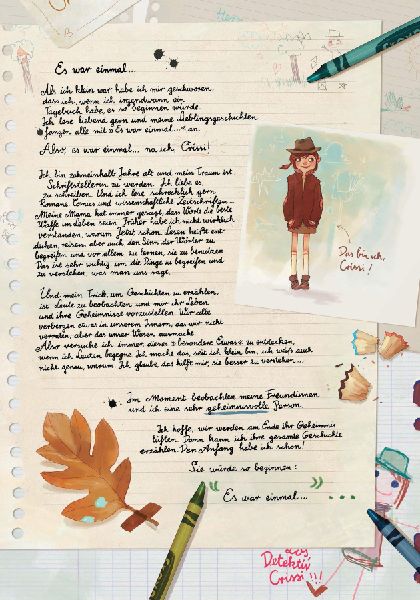 Es war einmal...
Als ich klein war habe ich mir geschworen
dass ich, wenn ich irgendwann ein
Tagebuch habe, es so beginnen würde.
Ich lese liebend gern und meine Lieblingsgeschichten
fangen alle mit »Es war einmal...« an.
Also, es war einmal... na ich. Crissi!
Ich bin zehneinhalb Jahre alt und mein Traum ist
Schriftstellerin zu werden. Ich liebe es
zu schreiben. Und ich lese schrecklich gern
Romane Comics und wissenschaftliche Zeitschriften...
Meine Mama hat immer gesagt, dass Worte die beste
Waffe im Leben seien. Früher habe ich nicht wirklich
verstanden, warum. Jetzt schon. Lesen heißt ent-
decken, reisen, aber auch den Sinn der Wörter zu
begreifen und vor allem zu lernen, sie zu benutzen
Das ist sehr wichtig um die Dinge zu begreifen und
zu verstehen, was man uns sagt.
Und mein Trick, um Geschichten zu erzählen,
ist Leute zu beobachten und mir ihr Leben
und ihre Geheimnisse vorzustellen. Wir alle
verbergen etwas in unserem Innern, das wir nicht
verraten, aber das unser Wesen ausmacht
Also versuche ich immer dieses besondere Etwas zu entdecken,
wenn ich Leuten begegne. Ich mache das, seit ich klein bin, ich weiß auch
nicht genau, warum. Ich glaube, das hilft mir, sie besser zu verstehen...
Im Moment beobachten meine Freundinnen
und ich eine sehr geheimnisvolle Person.
Ich hoffe, wir werden am Ende ihr Geheimnis
lüften. Dann kann ich ihre gesamte Geschichte
erzählen. Den Anfang habe ich schon!
Sie würde so beginnen:
"Es war einmal..."...
Das bin ich,
Crissi!
das
Detektiv
Crissi!!!